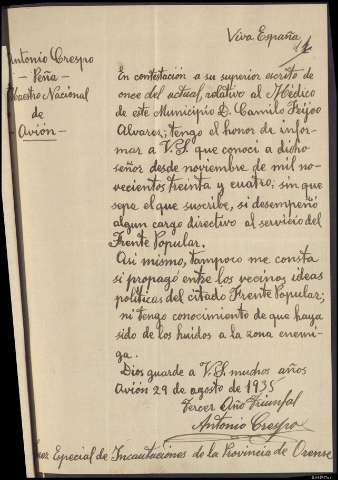 Viva España
Antonio Crespo
Peña -
Maestro Nacional
de
- Avión -
En contestación a su superior escrito de
once del actual, relativo al Médico
de este Municipio D. Camilo Feijoo
Alvarez; tengo el honor de infor-
mar a V.S. que conocí a dicho
señor desde noviembre de mil no-
vecientos treinta y cuatro: sin que
sepa el que suscribe, si desempeñó
algun cargo directivo al servicio del
Frente Popular.
Asi mismo, tampoco me consta
si propagó entre los vecinos ideas
políticas del citado Frente Popular;
ni tengo conocimiento de que haya
sido de los huidos a la zona enemi-
ga.
Dios guarde a V.S. muchos años
Avión 29 de agosto de 1935
Tercer Año Triunfal
Antonio Crespo
Especial de Incautaciones de la Provincia de Orense